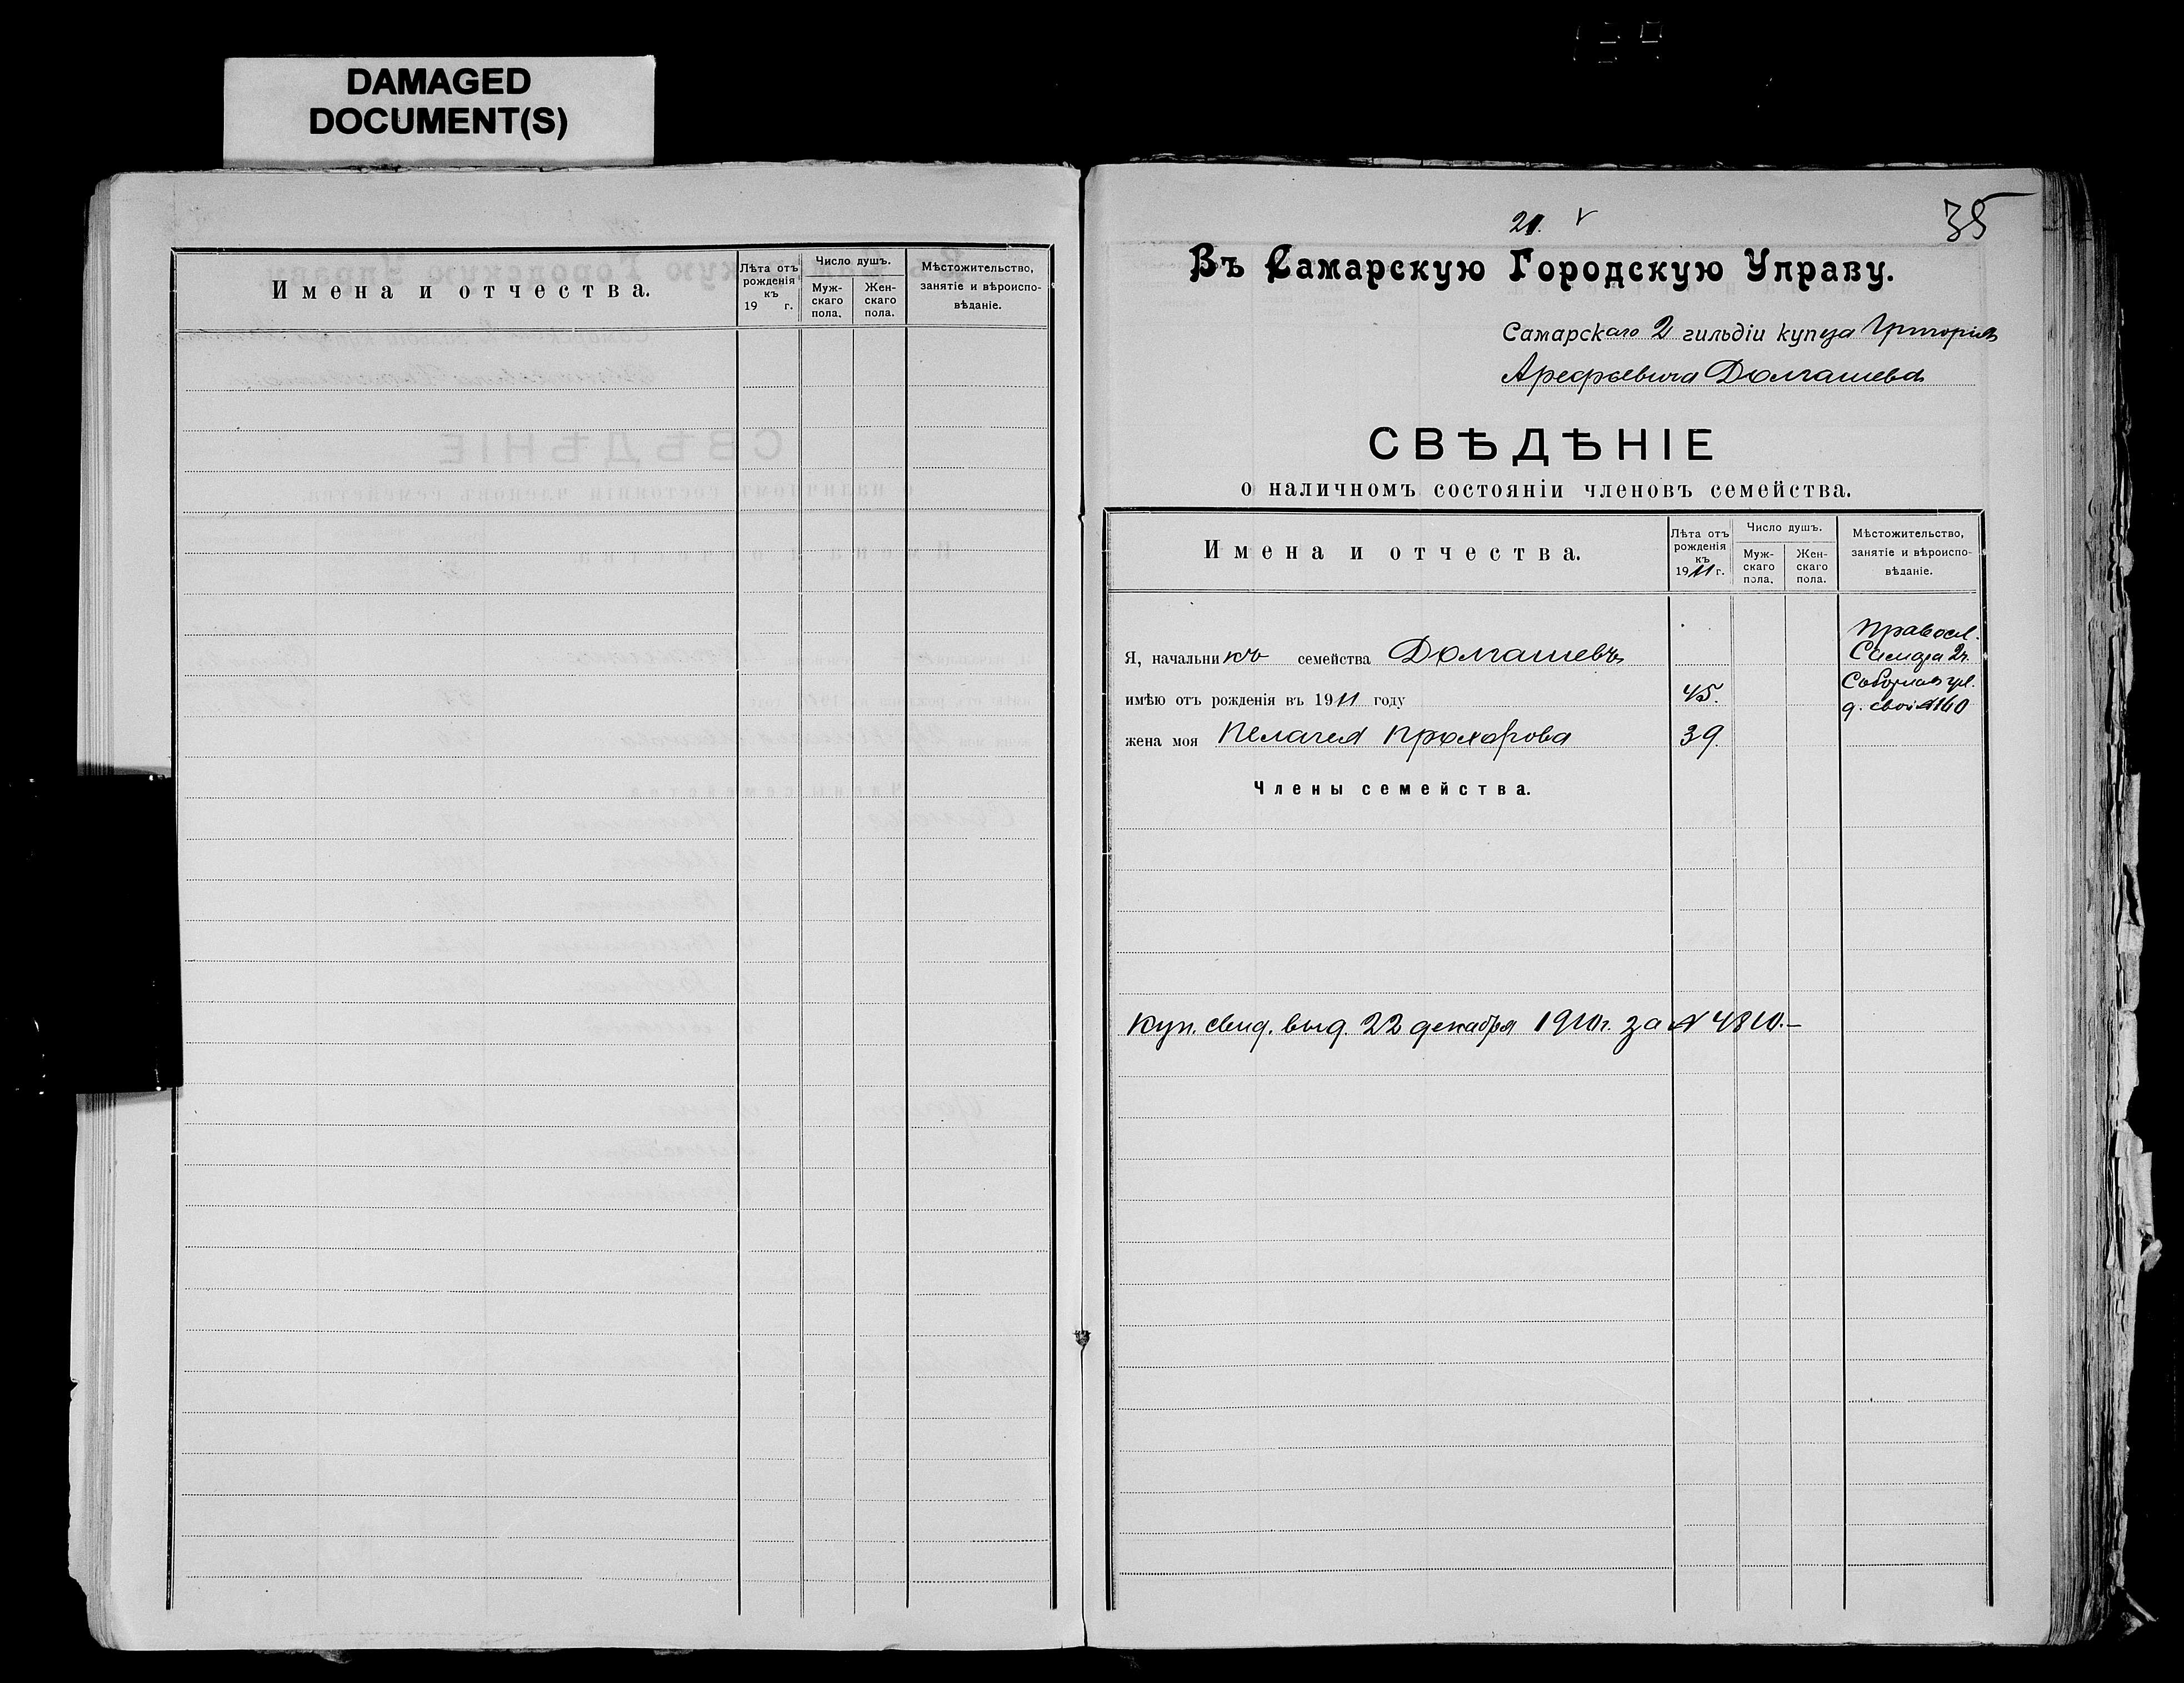 DAMAGED
DOCUMENT(S)
Имена и отчества.
Лѣта отъ рожденія къ 19 г.
Число душъ.
Мужскаго пола.
Женскаго пола.
Мѣстожительство, занятіе и вѣроисповѣданіе.
35
21. v
Въ Самарскую Городскую Управу.
Самарскаго 2 гильдіи купца Григорія
Арефьевича Долгашева
СВѢДѢНІЕ
о наличномъ состояніи членовъ семейства.
Имена и отчества.
Лѣта отъ рожденія къ 1911 г.
Число душъ.
Мужскаго пола.
Женскаго пола.
Мѣстожительство, занятіе и вѣроисповѣданіе.
Правосл.
Я, начальникъ семейства Долгашевъ
Самара 2ч.
Соборная ул.
имѣю отъ рожденія въ 1911 году 45.
д. свой №160
жена моя Пелагея Прохорова 39.
Члены семейства.
Куп. свид. выд. 22 декабря 1910г. за № 4810.—